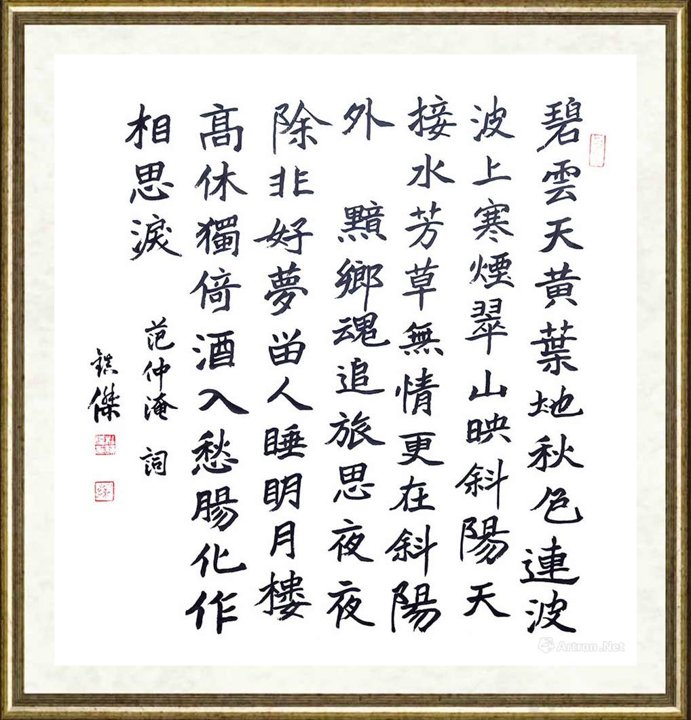 碧雲天黃葉地秋色連波
波上寒煙翠山映斜陽天
接水芳草無情更在斜陽
外 黯鄉魂追旅思夜夜
除非好夢留人睡明月樓
高休獨倚酒入愁腸化作
相思淚
范仲淹 詞
傑
Artron.Net